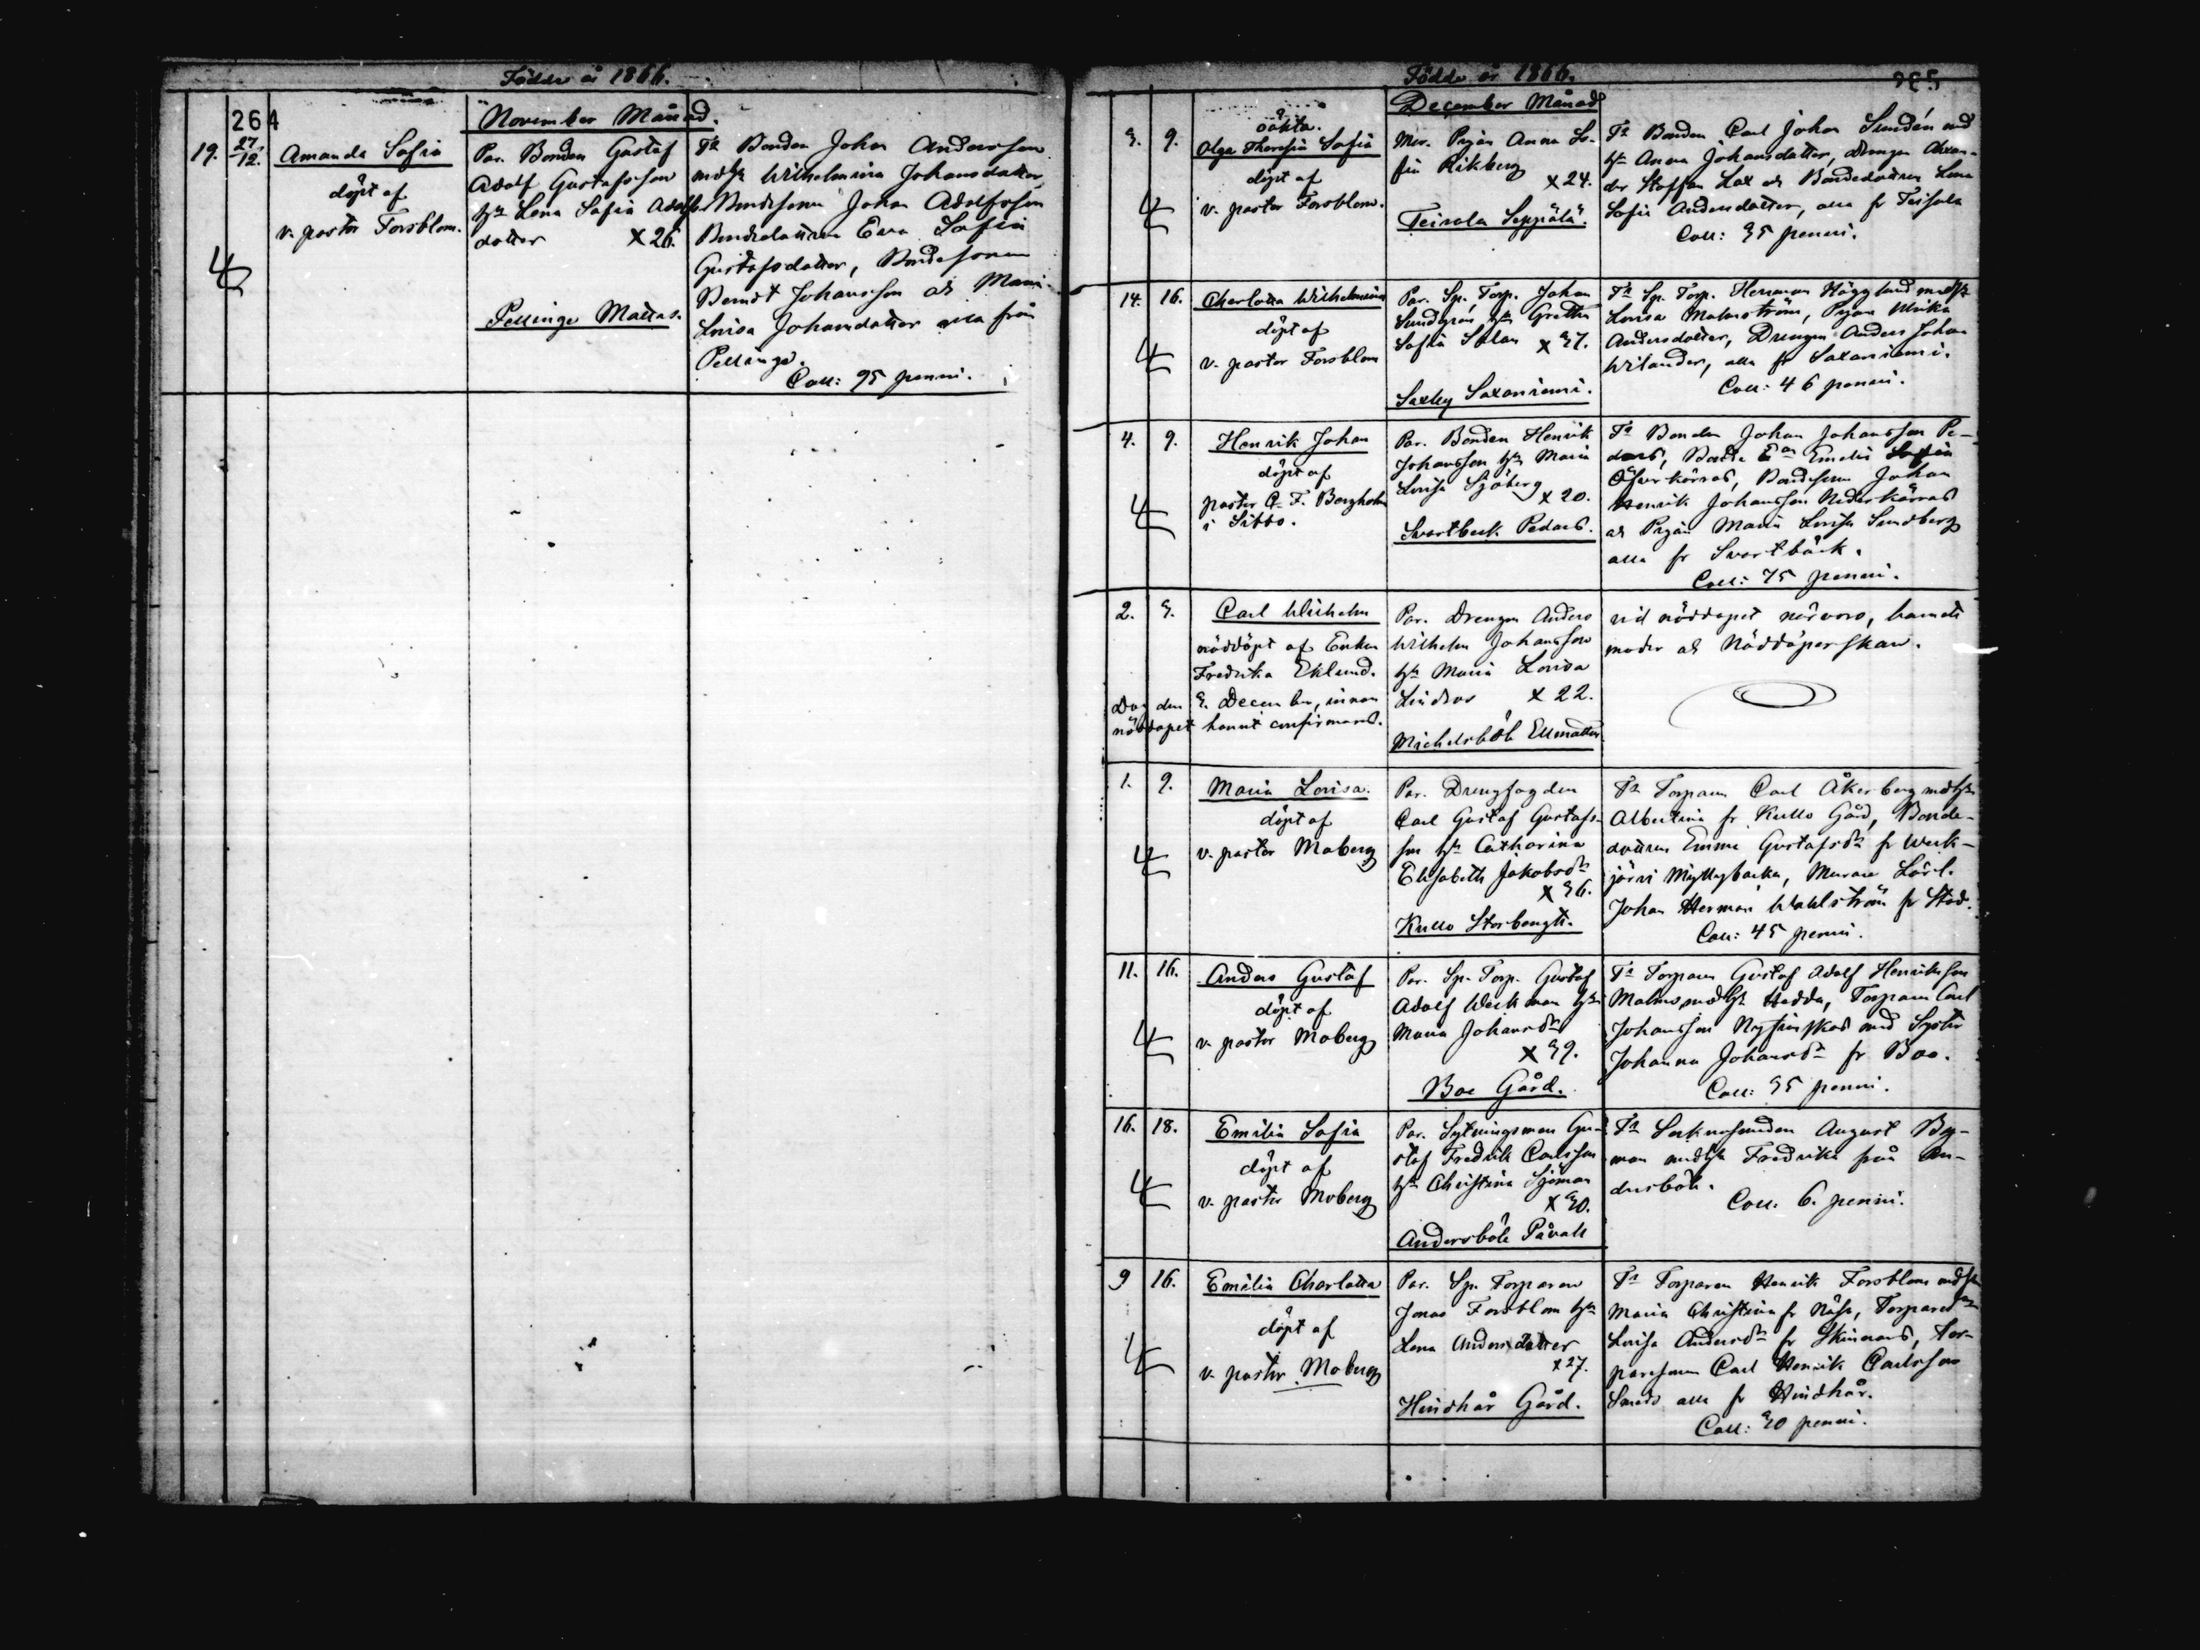 Födde år 1866.
264
November Månad.
19. 27/12. Amanda Sofia
döpt af
v. pastor Forsblom.
Par. Bonden Gustaf
Adolf Gustafsson
h: Lena Sofia Adolfs-
dotter X 26.
Pellinge Mattas.
Bonden Johan Andersson
Wilhelmina Johansdotter,
Bondesonen Johan Adolfsson
Bondedottren Eva Sofia
Gustafsdotter, Bondesonen
Berndt Johansson och Maria
Lovisa Johansdotter alla från
Pellinge.
Coll: 95 penni.
Födde år 1866.
265
December Månad
3. 9. oäkta.
Olga Theresia Sofia
döpt af
v. pastor Forsblom.
Mor. Pigan Anna So-
fia Rikberg X 24.
Teissala Seppälä.
Bonden Carl Johan Sundén med
Anna Johansdotter, drengen Alexan-
der Staffan Lax och Bondedottren Lena
Sofia Andersdotter, alla fr Teissala
Coll: 35 penni.
14. 16. Charlotta Wilhelmina
döpt af
v. pastor Forsblom
Par. Sp. Torp. Johan
Sundgrén Gretha
Sofia X 37.
Saxby Saxaniemi.
Sp. Torp. Herman Hägglund
Lovisa Malmström, Pigan Ulrika
Andersdotter, Drengen Anders Johan
Wilander, alla fr Saxaniemi.
Coll: 46 penni.
4. 9. Henrik Johan
döpt af
pastor C. F. Borgholm
i Sibbo.
Par. Bonden Henrik
Johansson Maria
Lovisa Sjöberg X 20.
Svartbeck Pedars.
Bonden Johan Johansson Pe-
dars, Emelie Sofia
Öfverkärras, Bondesonen Johan
Henrik Johansson Nederkärras
och Pigan Maria Lovisa Sundberg
alla fr Svartbäck.
Coll: 75 penni.
2. 3. Carl Wilhelm
nöddöpt af Enkan
Fredrika Eklund.
Dog den 3. December, innan
nöddopet hunnit confirmeras.
Par. Drengen Anders
Wilhelm Johansson
Maria Lovisa
Lindroos X 22.
Michelsböle Ellmattas
vid nöddopet närvoro, barnets
moder och Nöddöperskan.
1. 9. Maria Lovisa.
döpt af
v. pastor Moberg
Par. Drengfogden
Carl Gustaf Gustafs-
son Catharina
Elisabeth Jakobsdr
X 36.
Kullo Storbengts.
Torparen Carl Åkerberg
Albertina fr Kullo Gård, Bonde-
dottren Emma Gustafsdr fr Weck-
järvi Myllybacka, Murare Lärl.
Johan Herman Wahlström fr Stad.
Coll: 45 penni.
11. 16. Anders Gustaf
döpt af
v. pastor Moberg
Par. Sp. Torp. Gustaf
Adolf Weckman
Maria Johansdr
X 39.
Boe Gård.
Torparen Gustaf Adolf Henriksson
Malms Hedda, Torparen Carl
Johansson med Syster
Johanna Johansdr fr Boe.
Coll: 35 penni.
16. 18. Emilia Sofia
döpt af
v. pastor Moberg
Par. Sytningsman Gu-
staf Fredrik Carlsson
Christina Sjöman
X 30.
Andersböle Påvals
August By-
man Fredrika från An-
dersböle.
Coll. 6. penni.
9 16. Emilia Charlotta
döpt af
v. pastor Moberg
Par. Sp. Torparen
Jonas Forsblom
Lena Andersdotter
X 27.
Hindhår Gård.
Torparen Henrik Forsblom
Maria Christina fr Näse,
Lovisa Andersdr fr Skinnars, Tor-
paresonen Carl Henrik Carlsson
Smeds alla fr Hindhår.
Coll: 30 penni.